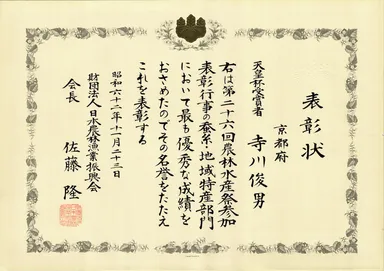 表彰状
京都府
天皇杯受賞者 寺川俊男
右は第二十六回農林水産祭参加
表彰行事の蚕糸・地域特産部門
において最も優秀な成績を
おさめたのでその名誉をたたえ
これを表彰する
昭和六十二年十一月二十三日
財団法人日本農林漁業振興会
会長 佐藤隆